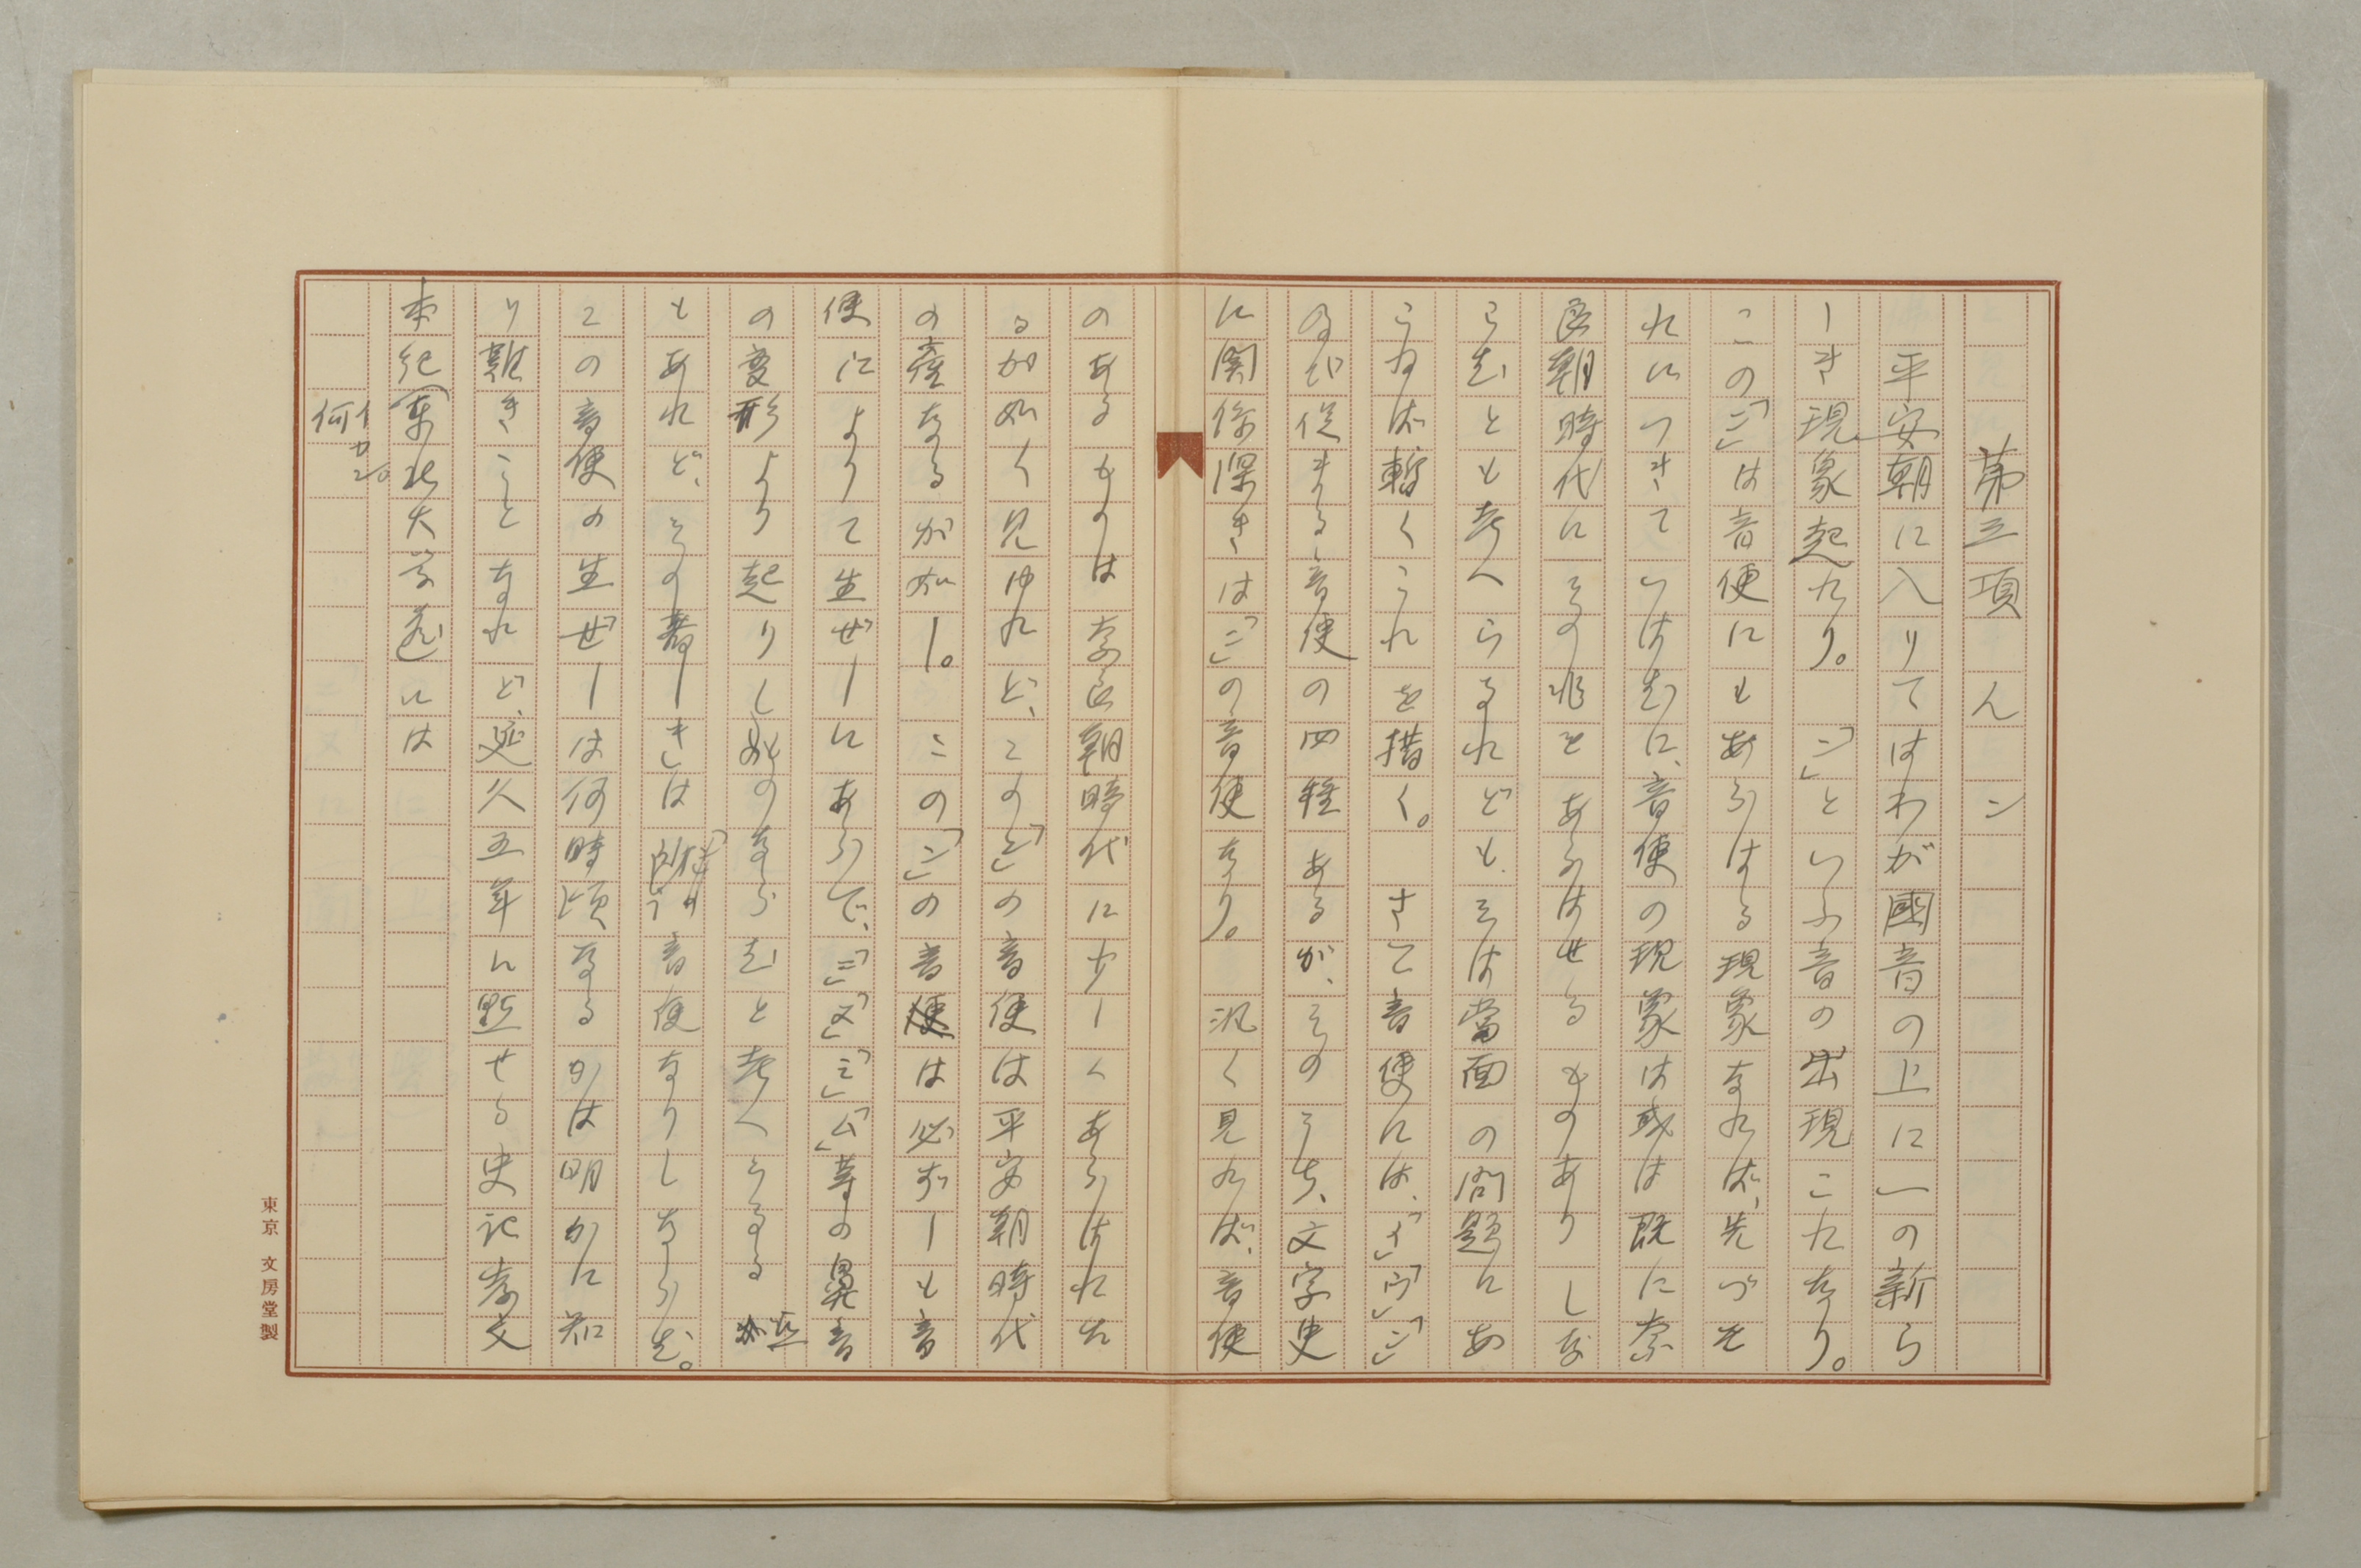 第三項　ん　ン
平安朝に入りてはわが國音の上に一の新ら
しき現象起れり。「ン」といふ音の出現これなり。
この「ン」は音便にもあらはるる現象なれば、先づそ
れにつきていはむに、音便の現象は或は既に奈
良朝時代にその兆をあらはせるものありしな
らむとも考へらるれども、そは當面の問題にあ
らねば暫くこれを措く。さて音便には、「イ」「ウ」「ン」
及び促まる音便の四種あるが、そのうち、文字史
に関係深きは「ン」の音便なり。汎く見れば、音便
のあるものは奈良朝時代に少しくあらはれた
るが如く見ゆれど、この「ン」の音便は平安朝時代
の産なるが如し。この「ン」の音便は必ずしも音
便によりて生ぜしにあらで、「ニ」「ヌ」「ミ」「ム」等の鼻音
の変形より起りしものならむと考へらるる
もあれど、その著しきは所謂音便なりしならむ。
この音便の生ぜしは何時頃なるかは明かに知
り難きことなれど、延久五年に點せる史記孝文
本紀(東北大学蔵)には
何イカン。
東京　文房堂製